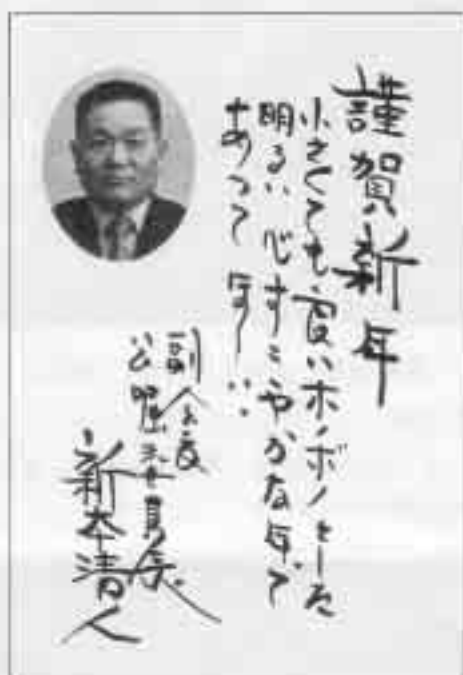 謹賀新年
小さくても良いホノボノとした
明るい心すこやかな年で
あって ほしい
副会長
公聴委員長
新本清人